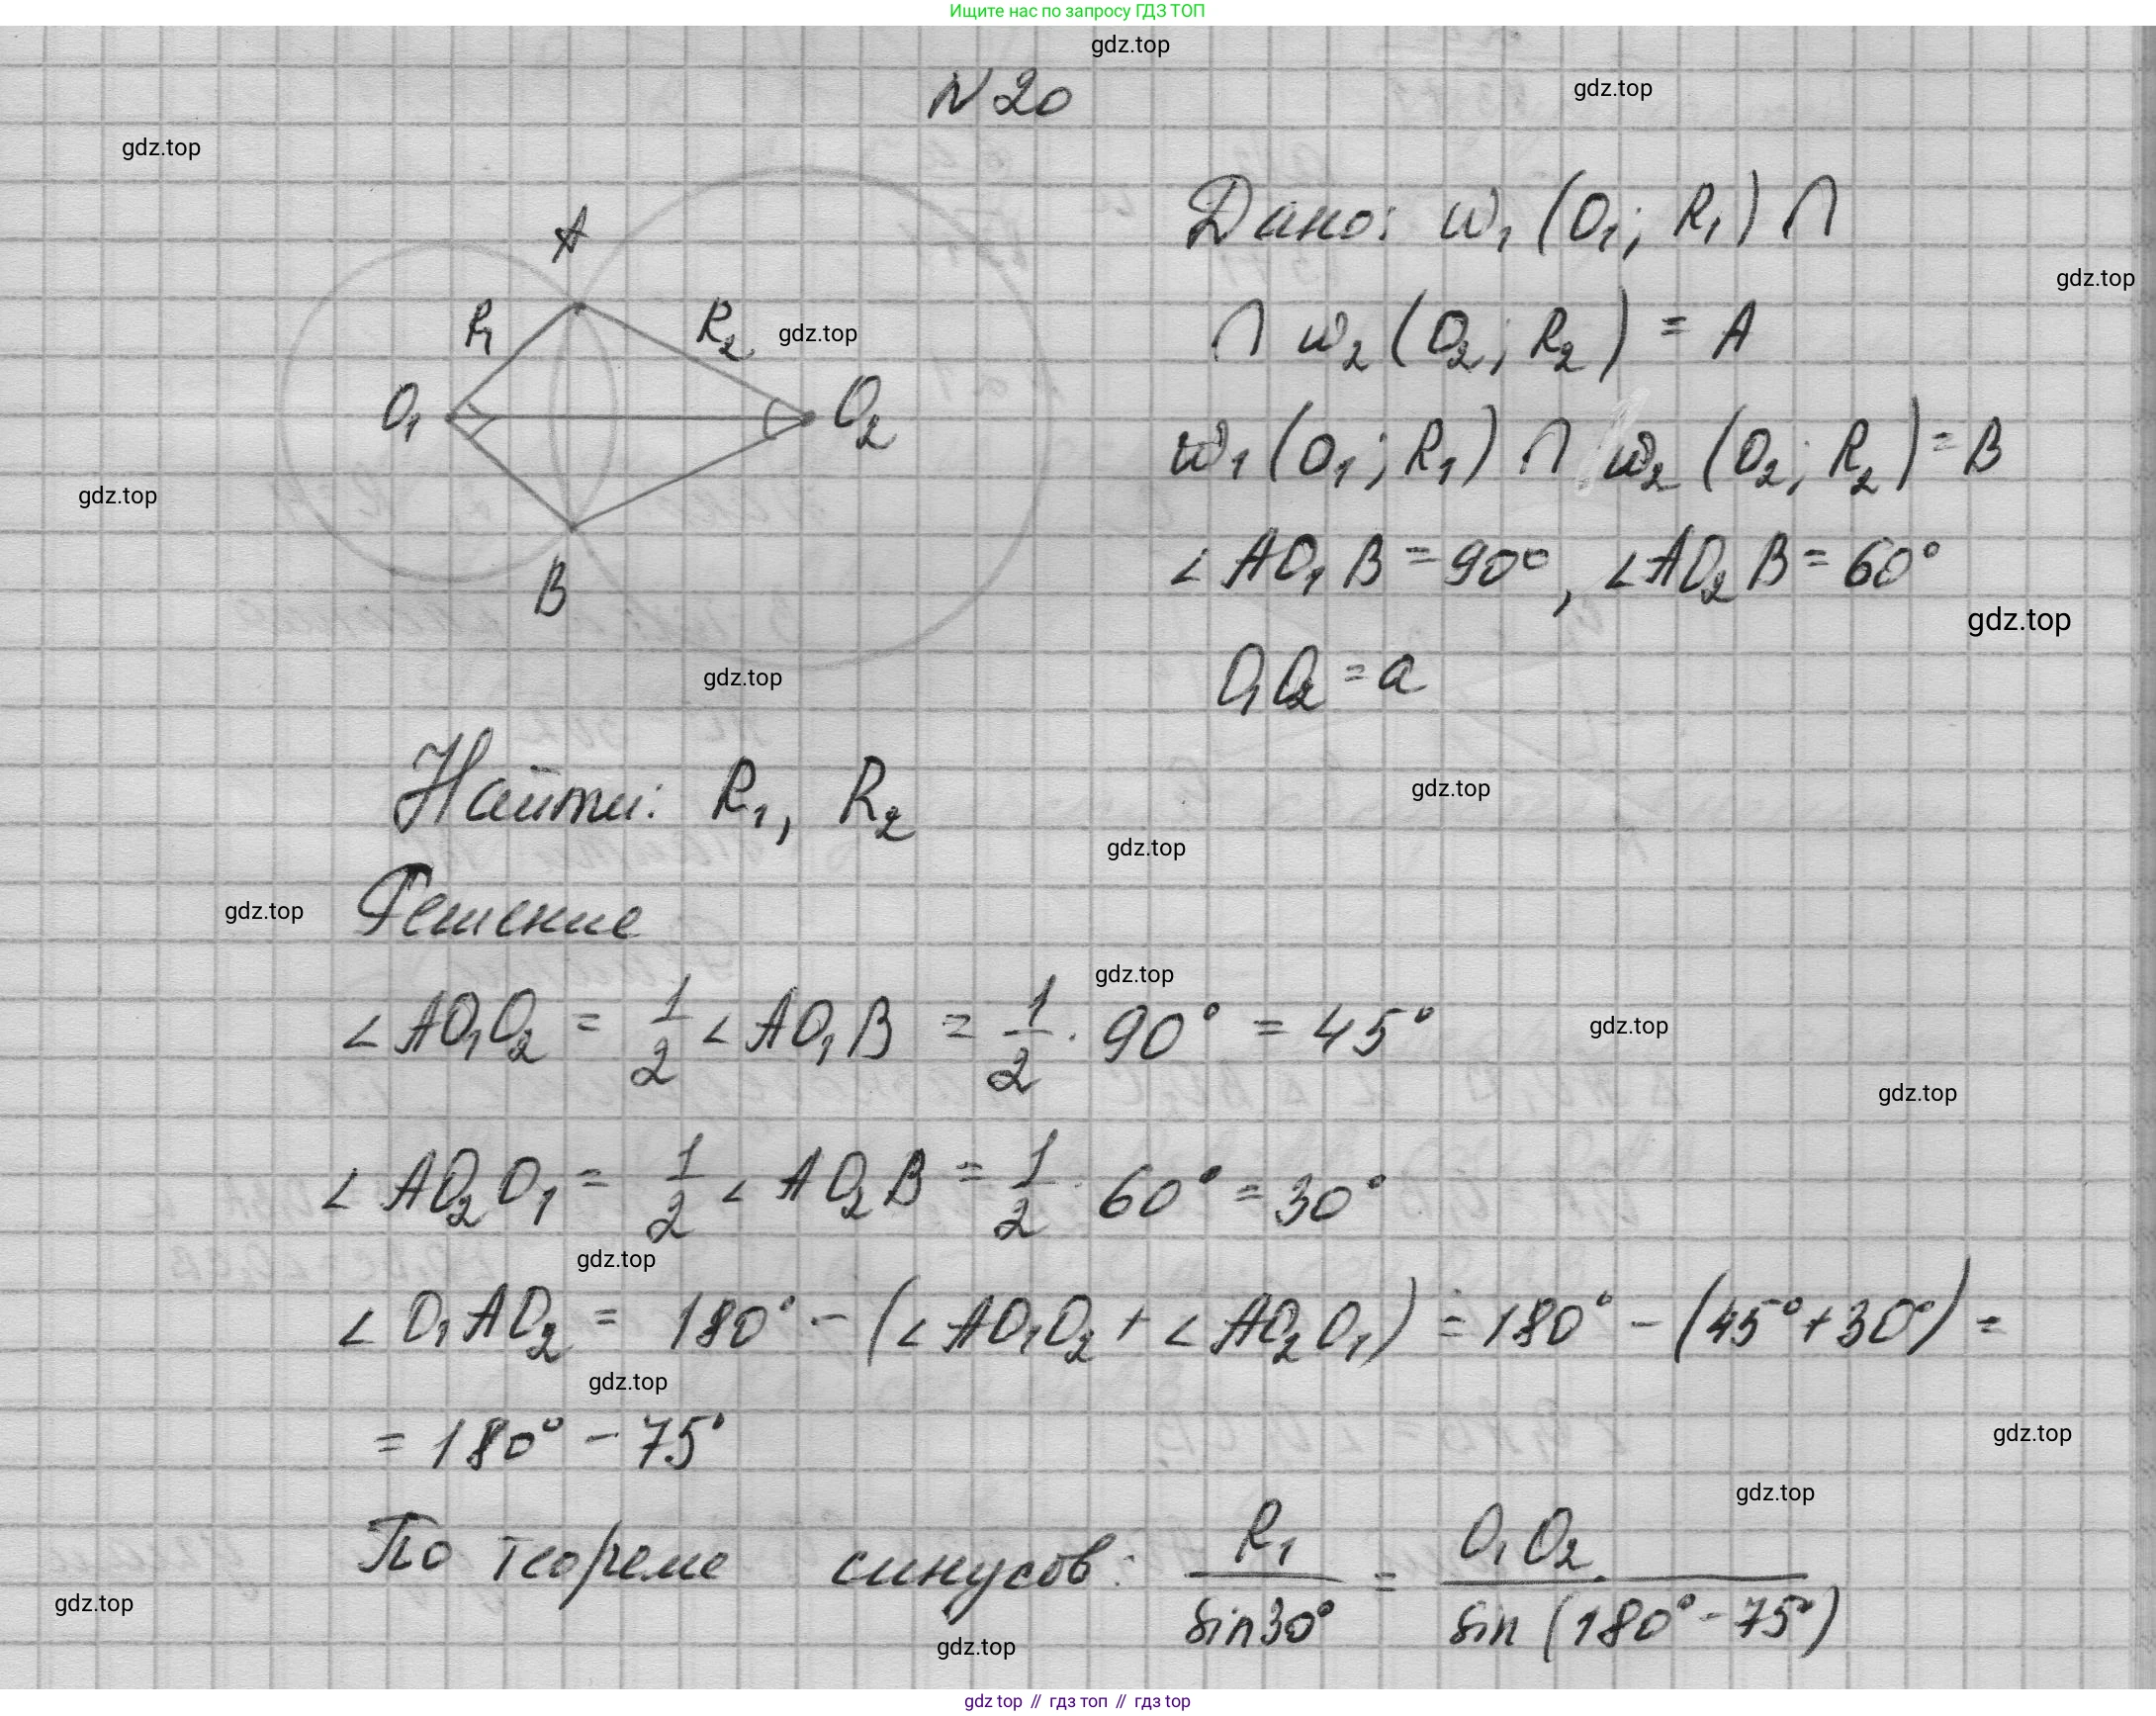 Ищите нас по запросу ГДЗ ТОП
gdz.top
N 20
gdz.top
gdz.top
A
Дано: w₁ (O₁; R₁) ∩
gdz.top
R₁
R₂
gdz.top
∩ w₂ (O₂; R₂) = A
O₁
O₂
w₁ (O₁; R₁) ∩ w₂ (O₂; R₂) = B
gdz.top
B
∠AO₁B = 90°, ∠AO₂B = 60°
gdz.top
gdz.top
O₁O₂ = a
Найти: R₁, R₂
gdz.top
gdz.top
Решение
gdz.top
gdz.top
∠AO₁O₂ = 1/2 ∠AO₁B = 1/2 · 90° = 45°
gdz.top
gdz.top
∠AO₂O₁ = 1/2 ∠AO₂B = 1/2 · 60° = 30°
gdz.top
∠O₁AO₂ = 180° − (∠AO₁O₂ + ∠AO₂O₁) = 180° − (45° + 30°) =
gdz.top
= 180° − 75°
gdz.top
gdz.top
По теореме синусов: R₁/sin30° = O₁O₂/sin(180° − 75°)
gdz.top
gdz.top
gdz top // гдз топ // гдз top